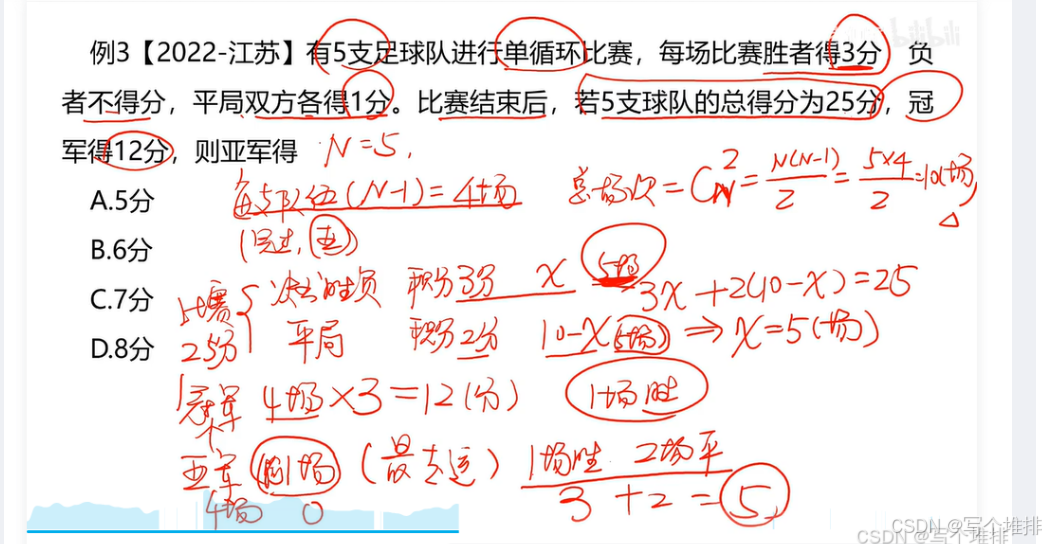 例3【2022-江苏】有5支足球队进行单循环比赛，每场比赛胜者得3分 负
者不得分，平局双方各得1分。比赛结束后，若5支球队的总得分为25分，冠
军得12分，则亚军得 N=5,
A.5分
每支队伍(N-1)=4场 总场次=C_N^2=N(N-1)/2=5×4/2=10(场)
B.6分
C.7分
比赛 决出胜负 积分3分 x 5场 3x+2(10-x)=25
D.8分
25分 平局 积分2分 10-x(5场) ⇒ x=5(场)
冠军 4场×3=12(分) 1场胜
亚军 输1场 (最幸运) 1场胜 2场平
4场 0 3+2=5
CSDN @写个堆排